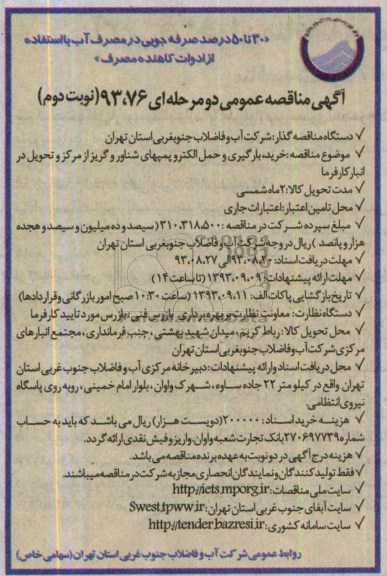 «۳۰ تا ۵۰ درصد صرفه جویی در مصرف آب با استفاده
از ادوات کاهنده مصرف»
آگهی مناقصه عمومی دو مرحله ای ۹۳،۷۶ (نوبت دوم)
✓ دستگاه مناقصه گذار: شرکت آب و فاضلاب جنوبغربی استان تهران
✓ موضوع مناقصه: خرید، بارگیری و حمل الکترو پمپهای شناور و گریز از مرکز و تحویل در
انبار کارفرما
✓ مدت تحویل کالا: ۲ ماه شمسی
✓ محل تامین اعتبار: اعتبارات جاری
✓ مبلغ سپرده شرکت در مناقصه: ۳۱۰،۳۱۸،۵۰۰ (سیصد و ده میلیون و سیصد و هجده
هزار و پانصد) ریال در وجه شرکت آب و فاضلاب جنوبغربی استان تهران
✓ مهلت دریافت اسناد: ۹۳،۰۸،۲۰ الی ۹۳،۰۸،۲۷
✓ مهلت ارائه پیشنهادات: ۱۳۹۳،۰۹،۰۹ (تا ساعت ۱۴)
✓ تاریخ بازگشایی پاکات الف: ۱۳۹۳،۰۹،۱۱ (ساعت ۱۰:۳۰ صبح امور بازرگانی و قراردادها)
✓ دستگاه نظارت: معاونت نظارت بهره برداری، بازرس فنی، بازرس مورد تایید کارفرما
✓ محل تحویل کالا: رباط کریم، میدان شهید بهشتی، جنب فرمانداری، مجتمع انبارهای
مرکزی شرکت آب و فاضلاب جنوبغربی استان تهران
✓ محل دریافت اسناد و ارائه پیشنهادات: دبیرخانه مرکزی آب و فاضلاب جنوب غربی استان
تهران واقع در کیلومتر ۲۲ جاده ساوه، شهرک واوان، بلوار امام خمینی، روبه روی پاسگاه
نیروی انتظامی.
✓ هزینه خرید اسناد: ۲۰۰۰۰۰ (دویست هزار) ریال می باشد که باید به حساب
شماره ۲۷۰۶۹۷۷۳۹ بانک تجارت شعبه واوان واریز و فیش نقدی ارائه گردد.
✓ هزینه درج آگهی در دو نوبت به عهده برنده مناقصه می باشد.
✓ فقط تولید کنندگان و نمایندگان انحصاری مجاز به شرکت در مناقصه میباشند.
✓ سایت ملی مناقصات: http://iets.mporg.ir
✓ سایت آبفای جنوب غربی استان تهران: Swest.tpww.ir
✓ سایت سامانه کشوری: http://tender.bazresi.ir
روابط عمومی شرکت آب و فاضلاب جنوب غربی استان تهران (سهامی خاص)